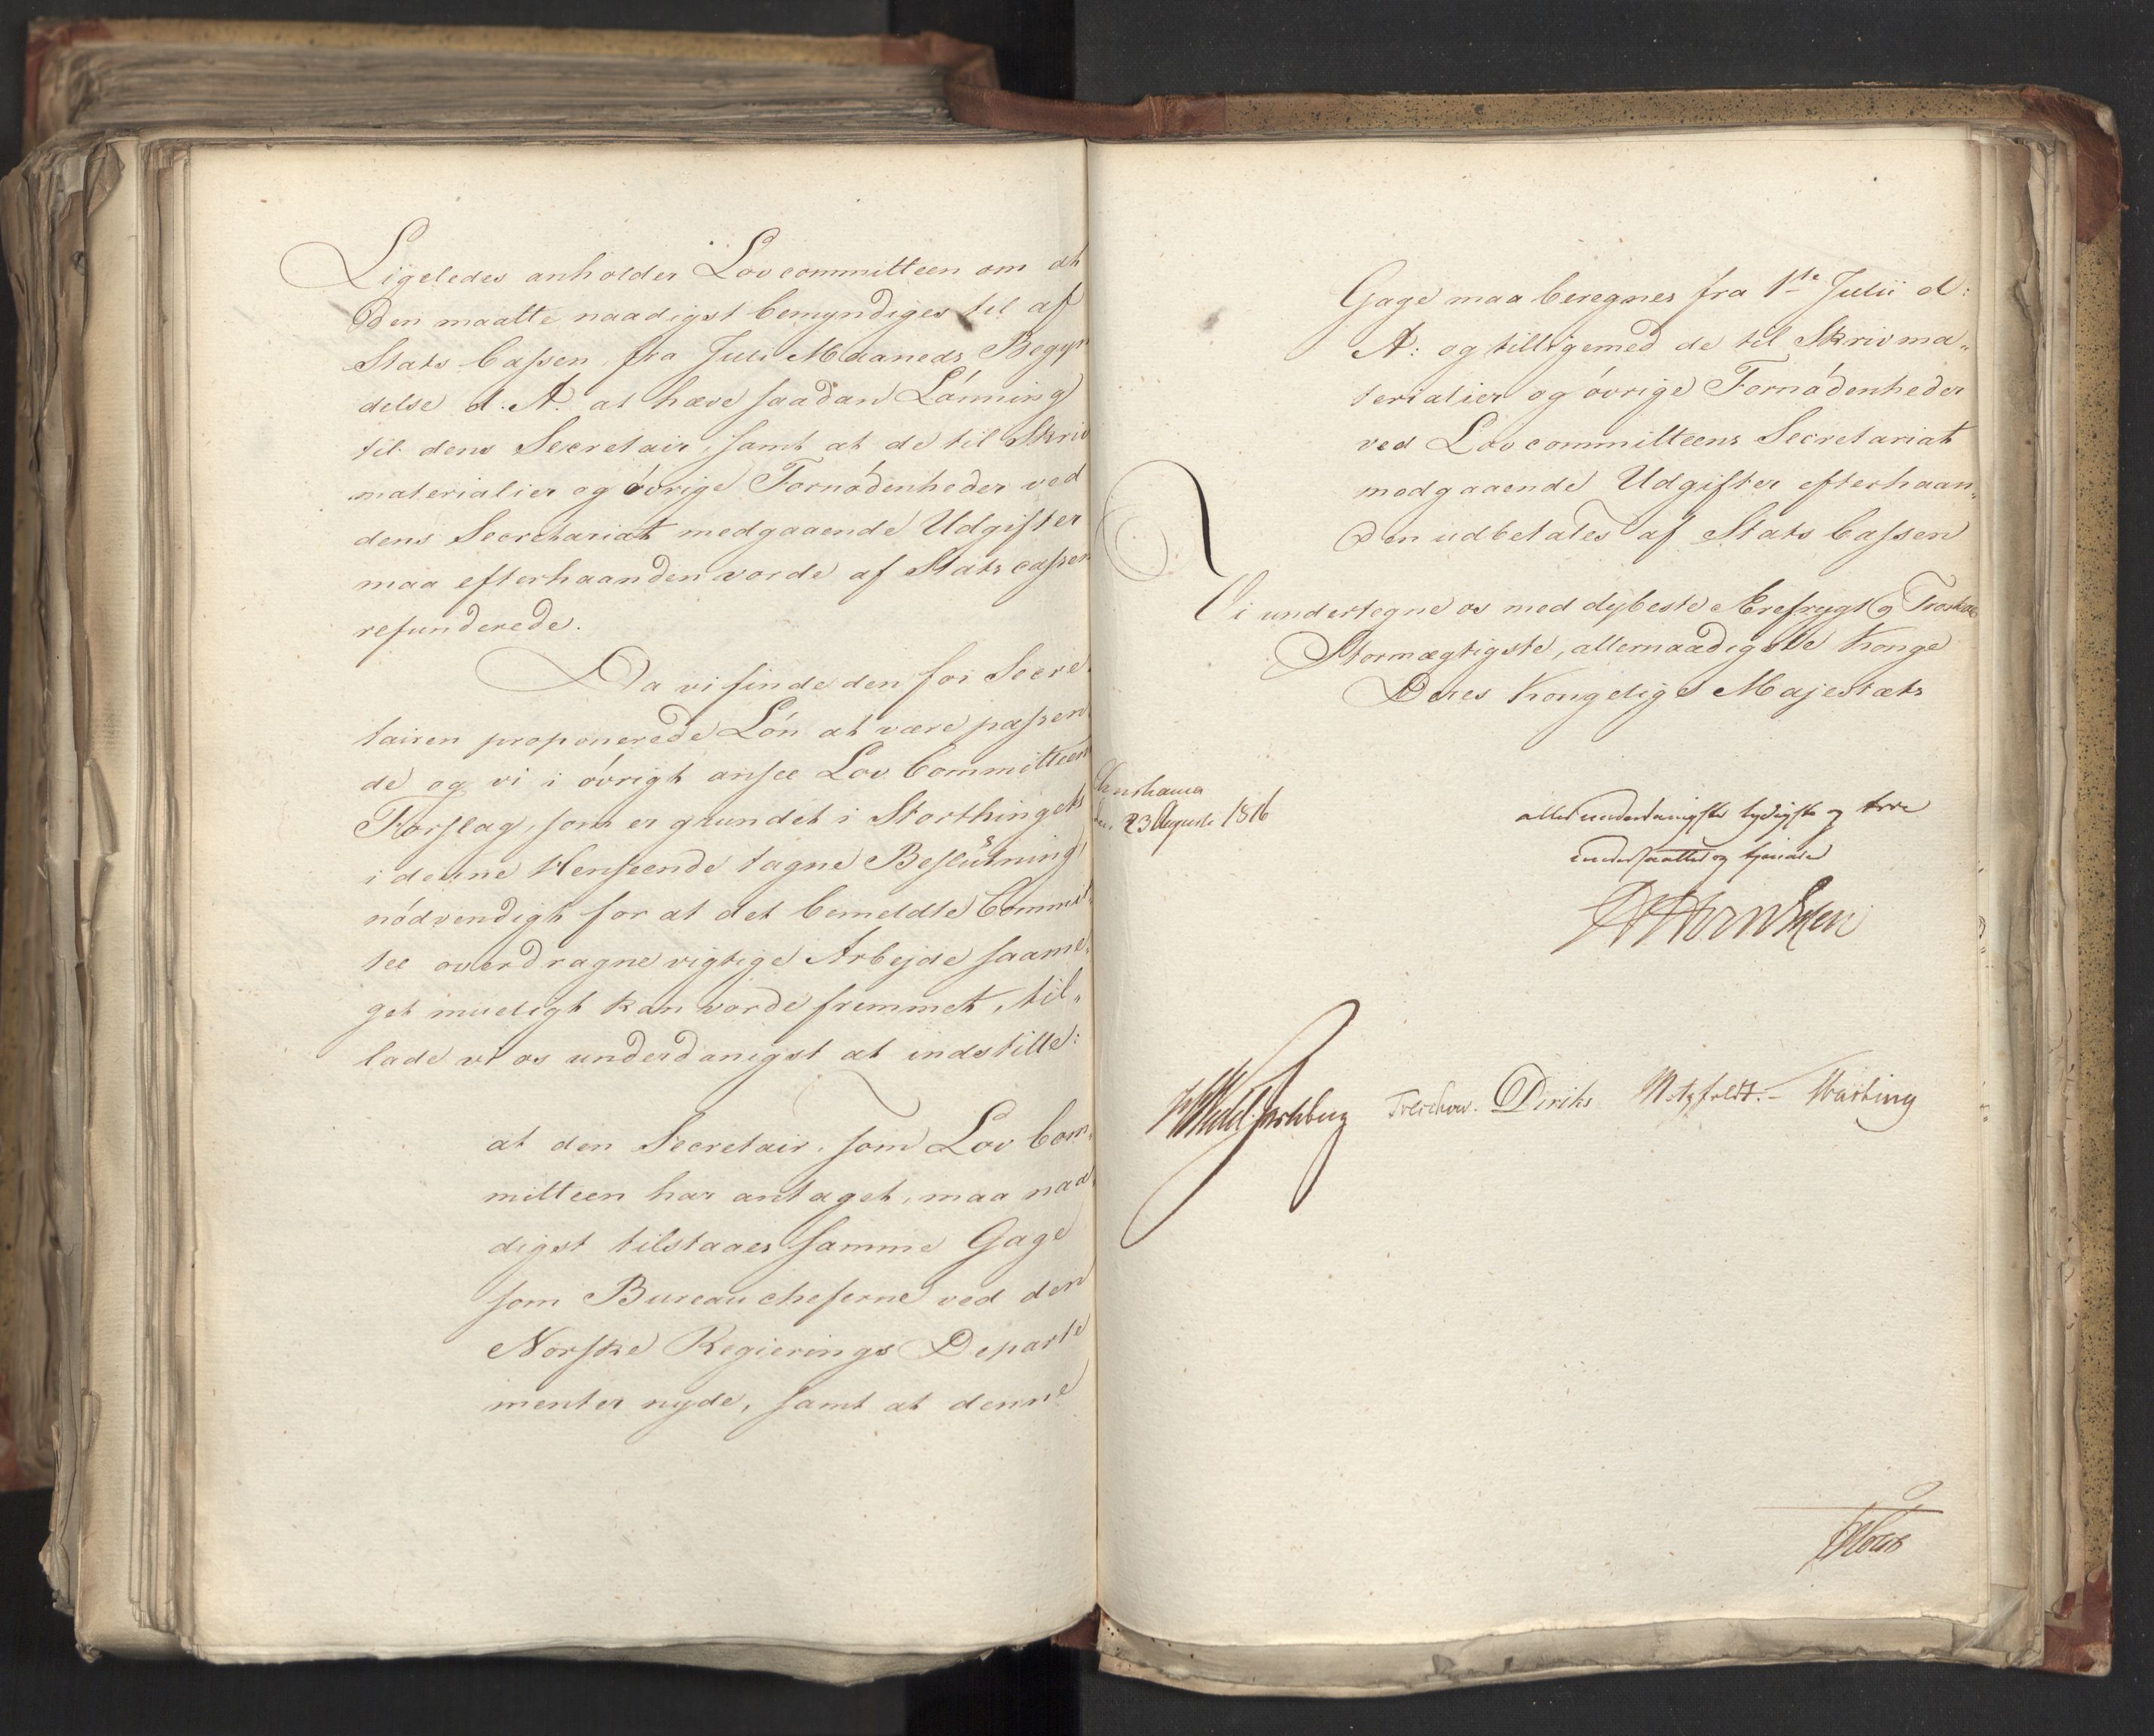 Ligeledes anholder Lovcommitteen om at
den maatte naadigst bemyndiges til af
Stats Cassen fra Juli Maaneds Begyn
delse d. A. at hæve saadan Lønning
til dens Secretair, samt at de til Skriv
materialier og øvrige Fornødenheder ved
dens Secretariat medgaaende Udgifter
maa efterhaanden vorde af Statscassen
refunderede.
Da vi finde den for Secre
tairen proponerede Løn at være passen
de og vi i øvrigt ansee Lov Committeens
Forslag, som er grundet i Storthingets
i denne Henseende tagne Beslutning,
nødvendigt for at det bemeldte Commit
tee overdragne vigtige Arbejde saame
get mueligt kan vorde fremmet, til„
lade vi os underdanigst at indstille:
at den Secretair, som Lov Com
mitteen har antaget, maa naa
digst tilstaaes samme Gage
som Bureaucheferne ved den
Norske Regierings Departe
menter nyde, samt at denne
Gage maa beregnes fra 1ste Julii d:
A: og tilligemed de til Skrivma„
terialier og øvrige Fornødenheder
ved Lovcommitteens Secretariat
medgaaende Udgifter efterhaan„
den udbetales af Stats Cassen
Vi undertegne os med dybeste Ærefrygt og Troskab
Stormægtigste, allernaadigste Konge
Deres Kongelige Majestæts
Christiania
den 23 August 1816
allerunderdanigste lydigste og troe
undersaatter og tjenere
Treschow. Diriks Motzfeldt. Hasting